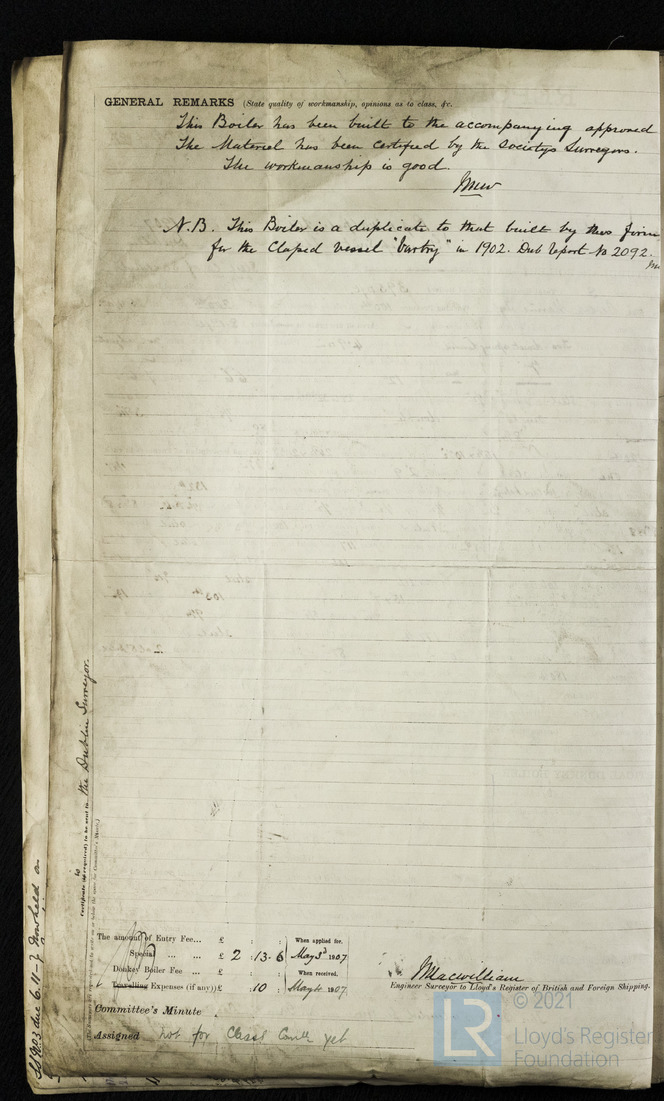 GENERAL REMARKS (State quality of workmanship, opinions as to class, &c.
This Boiler has been built to the accompanying approved
The Material has been certified by the Societys Surveyors.
The workmanship is good.
N.B. This Boiler is a duplicate to that built by this firm
for the Classed vessel "Vartry" in 1902. Dub Report No 2092.
the Dublin Surveyor.
Certificate (if required) to be sent to
The amount of Entry Fee... £ : :
When applied for.
Special ... ... £ 2 : 13 . 6
May 3d 1907
Donkey Boiler Fee ... £ : :
When received.
Travelling Expenses (if any) £ : 10 :
May 1907
JMacwilliam
Engineer Surveyor to Lloyd's Register of British and Foreign Shipping.
Committee's Minute
Assigned not for Class Comtt yet
© 2021
LR
Lloyd's Register
Foundation